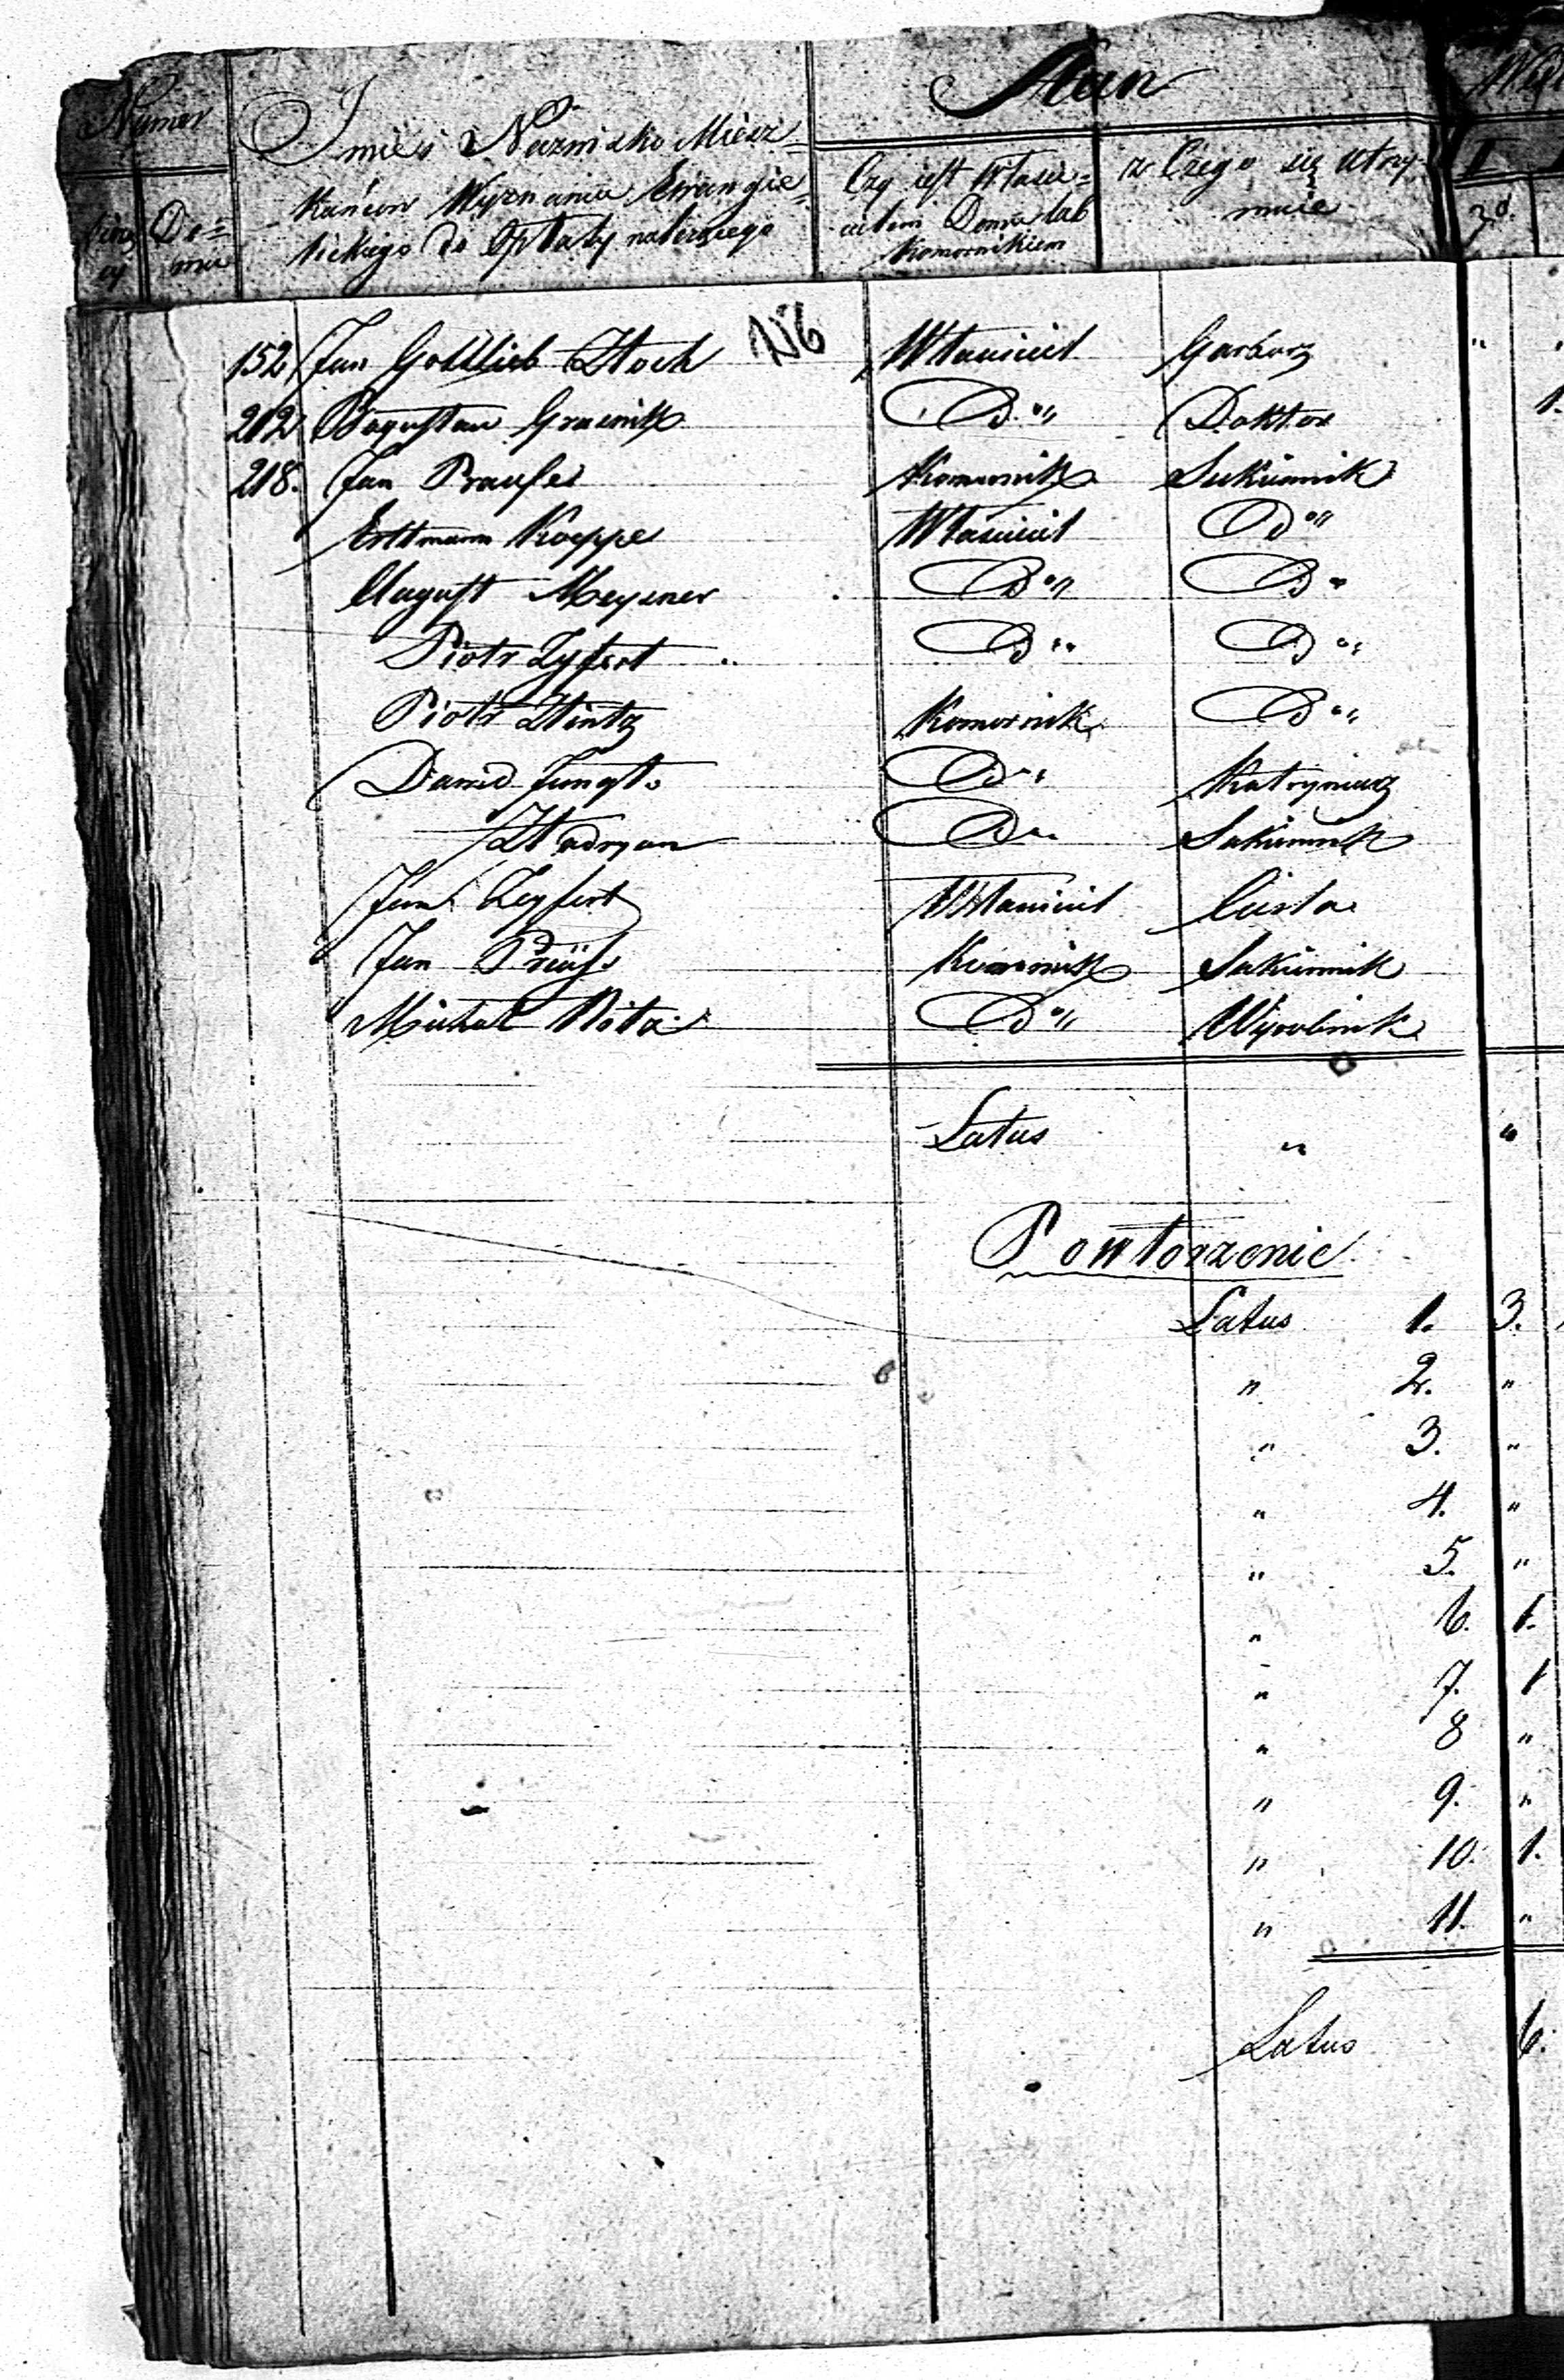 Numer
Stan
Imie i Nazwisko Miesz=
kańcow Wyznania Ewangie=
lickiego do Opłaty należącego
Do=
mu
Czy jest Właści=
cielem Domu lub
Komornikiem
z Czego się utrzy-
muie
I
152 Jan Gottlieb Stoch Właściciel Garbarz "
212 Bogusław D° " Doktor 1.
218. Jan Prause Komornik Sukiennik
Erttmann Koeppe Właściciel D° "
August Meysner D° " D° "
Piotr Zyfert D° " D° "
Piotr Komornik D° "
Daniel Jungt D° " Katryniarz
D° " Sukiennik
Jan Zeyfert Właściciel Cieśla
Jan Preüs Komornik Sukiennik
Michał D° " Wyrobnik
Latus " "
Powtorzenie
Latus 1. 3.
" 2. "
" 3. "
" 4. "
" 5. "
" 6. 1.
" 7. 1
" 8 "
" 9. "
" 10. 1.
" 11. "
Latus 6.